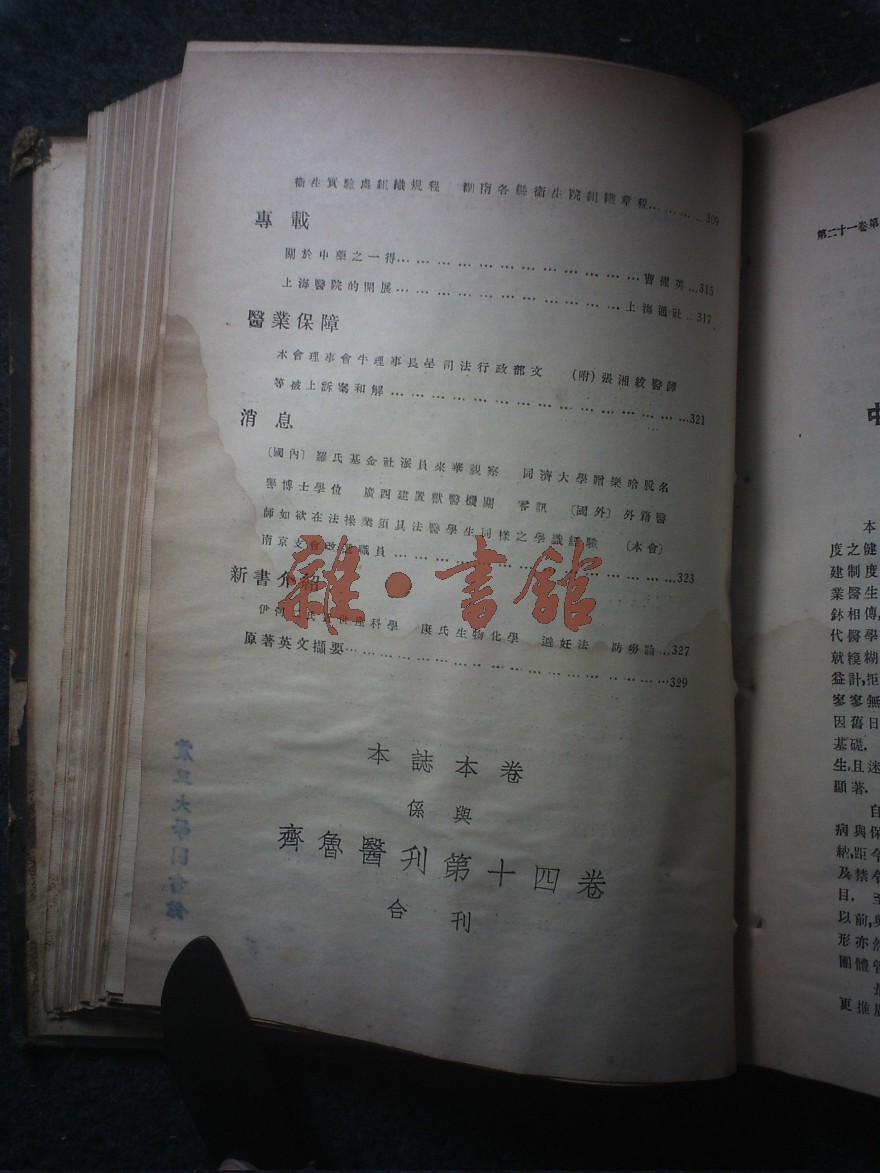 衞生實驗處組織規程 湖南各縣衞生院組織章程………309
專載
關於中藥之一得……………………………曹耀英…315
上海醫院的開展……………………………上海通社…317
醫業保障
本會理事會牛理事長呈司法行政部文 (附)張湘紋醫師
等被上訴案和解……………………………321
消息
〔國內〕羅氏基金社派員來華視察 同濟大學贈樂哈股名
譽博士學位 廣西建置獸醫機關 零訊 〔國外〕外籍醫
師如欲在法操業須具法醫學生同樣之學識經驗 〔本會〕
南京支會改選職員……………………………323
新書介紹
氏產科學 庞氏生物化學 避妊法 防癆論…327
原著英文摘要……………………………329
本誌本卷
係與
齊魯醫刊第十四卷
合刊
雜·書館
震旦大學圖書館
第二十一卷第
本
度之健
建制度
業醫生
鉢相傳,
代醫學
就糢糊
益計,拒
寥寥無
因舊日
基礎.
生,且迷
顯著.
自
病與保
納,距今
及禁令
目. 至
以前,與
形亦然
團體管
更推廣